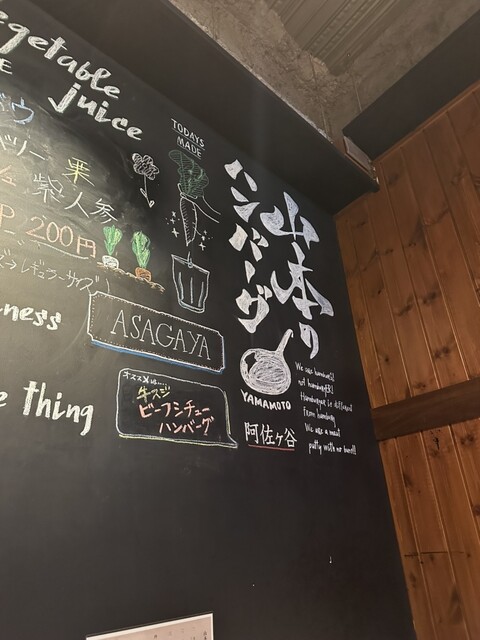 Vegetable
juice
栗
紫人参
200円
レギュラーサイズ
TODAYS
MADE
山本の
ハンバーグ
YAMAMOTO
ASAGAYA
thing
オススメは……
牛スジ
ビーフシチュー
ハンバーグ
阿佐ヶ谷
We are hamburg!!
not hamburger!!
Hamburger is different
from hamburg
We are a meat
patty with no bun!!